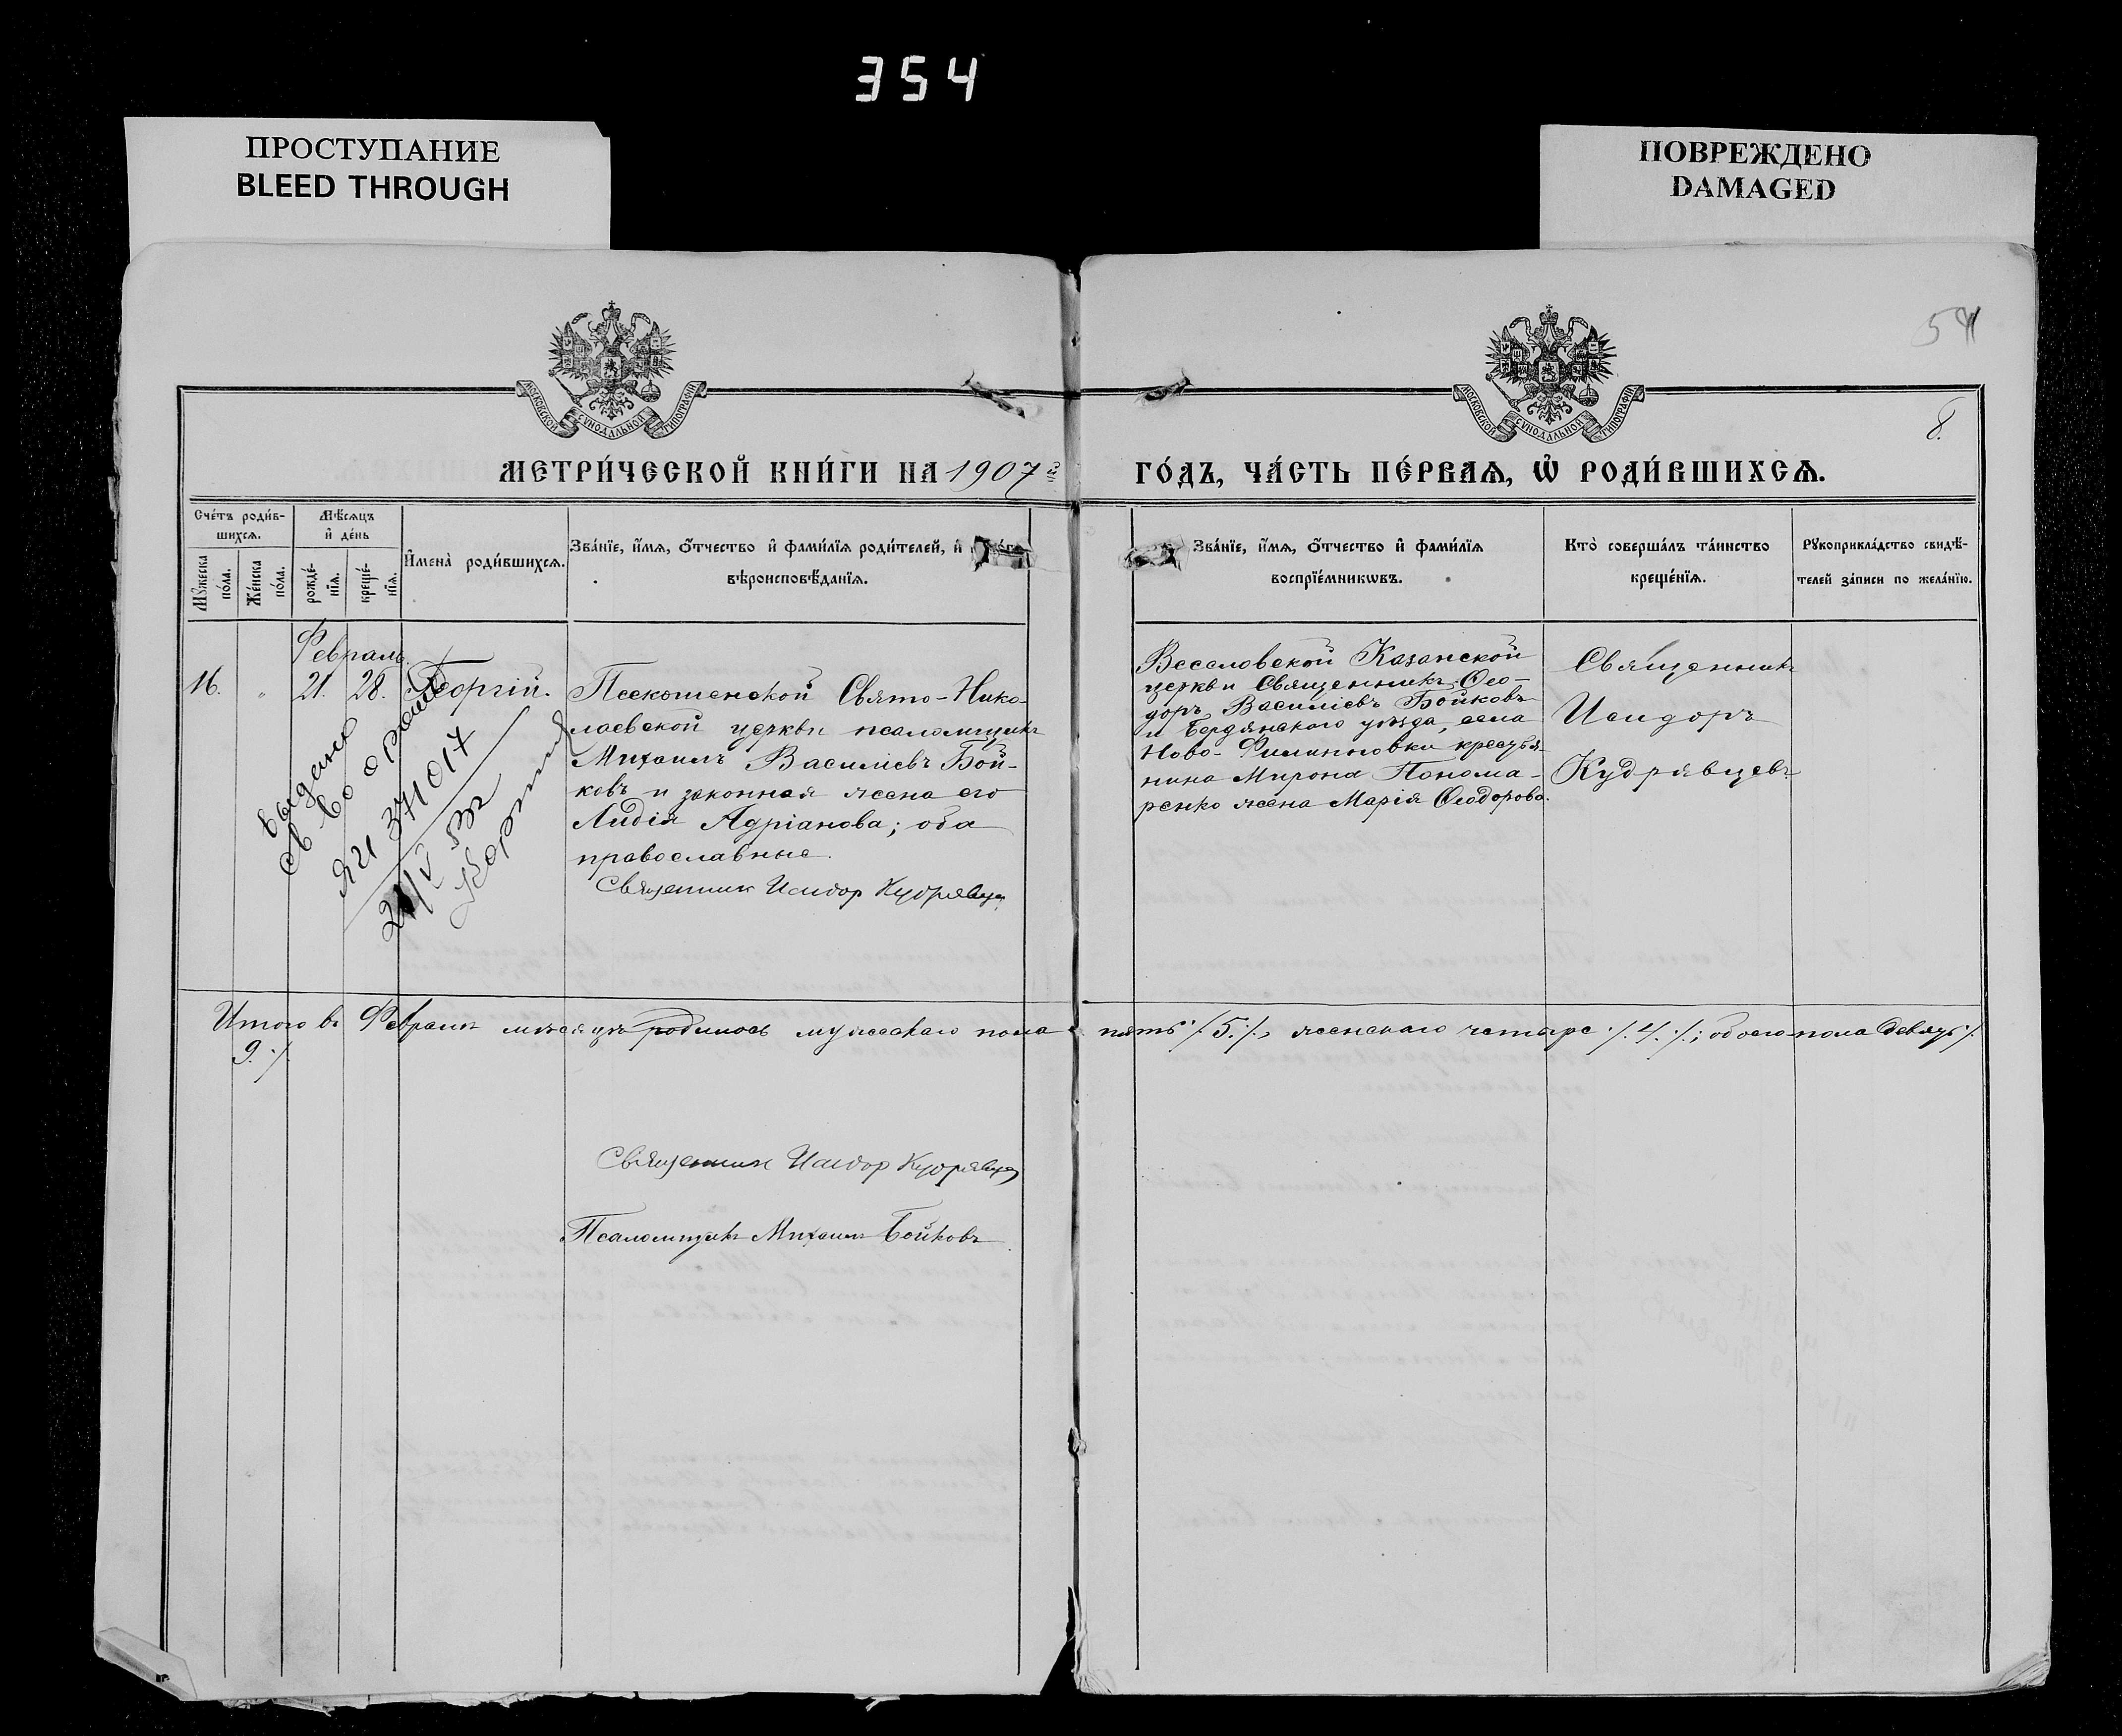 354
ПРОСТУПАНИЕ
BLEED THROUGH
ПОВРЕЖДЕНО
DAMAGED
54
8.
МОСКОВСКОЙ СУНОДАЛЬНОЙ ТИПОГРАФІИ
МОСКОВСКОЙ СУНОДАЛЬНОЙ ТИПОГРАФІИ
МЕТРИ́ЧЕСКОЙ КНИ́ГИ НА 1907 й
ГО́ДЪ, ЧА́СТЬ ПЕ́РВАѦ, Ѡ҆ РОДИ́ВШИХСѦ.
Сче́тъ роди́в-
шихсѧ.
Мѣ́сѧцъ
и҆ де́нь
Мꙋ́жеска
по́ла.
Же́нска
по́ла.
рожде́-
нїѧ.
креще́-
нїѧ.
И҆мена̀ роди́вшихсѧ.
Зва́нїе, и҆́мѧ, ѻ҆́тчество и҆ фами́лїѧ роди́телей, и҆
вѣроисповѣ́данїѧ.
Зва́нїе, и҆́мѧ, ѻ҆́тчество и҆ фами́лїѧ
воспрїе́мникѡвъ.
Кто̀ соверша́лъ та́инство
креще́нїѧ.
Рꙋкоприкла́дство свидѣ́-
телей за́писи по жела́нїю.
Февраль.
16.
"
21.
28.
Георгій.
Пескошенской Свято-Нико-
лаевской церкви псаломщикъ
Михаилъ Василіевъ Бой-
ковъ и законная жена его
Лидія Адріанова; оба
православные.
Священник Исидор Кудрявцев
Веселовской Казанской
церкви Священникъ Ѳео-
доръ Василіевъ Бойковъ
и Бердянскаго уѣзда, села
Ново-Филипповки крестья-
нина Мирона Понома-
ренко жена Марія Ѳеодорова.
Священникъ
Исидоръ
Кудрявцевъ
выдано
св во о рожд
ЯЦ 371017
21/V 53г
Итого въ Февралѣ мѣсяцѣ родилось мужескаго пола пять ./5./., женскаго четыре ./.4./.; обоего пола девять ./.
9./.
Священник Исидор Кудрявцев
Псаломщикъ Михаилъ Бойковъ